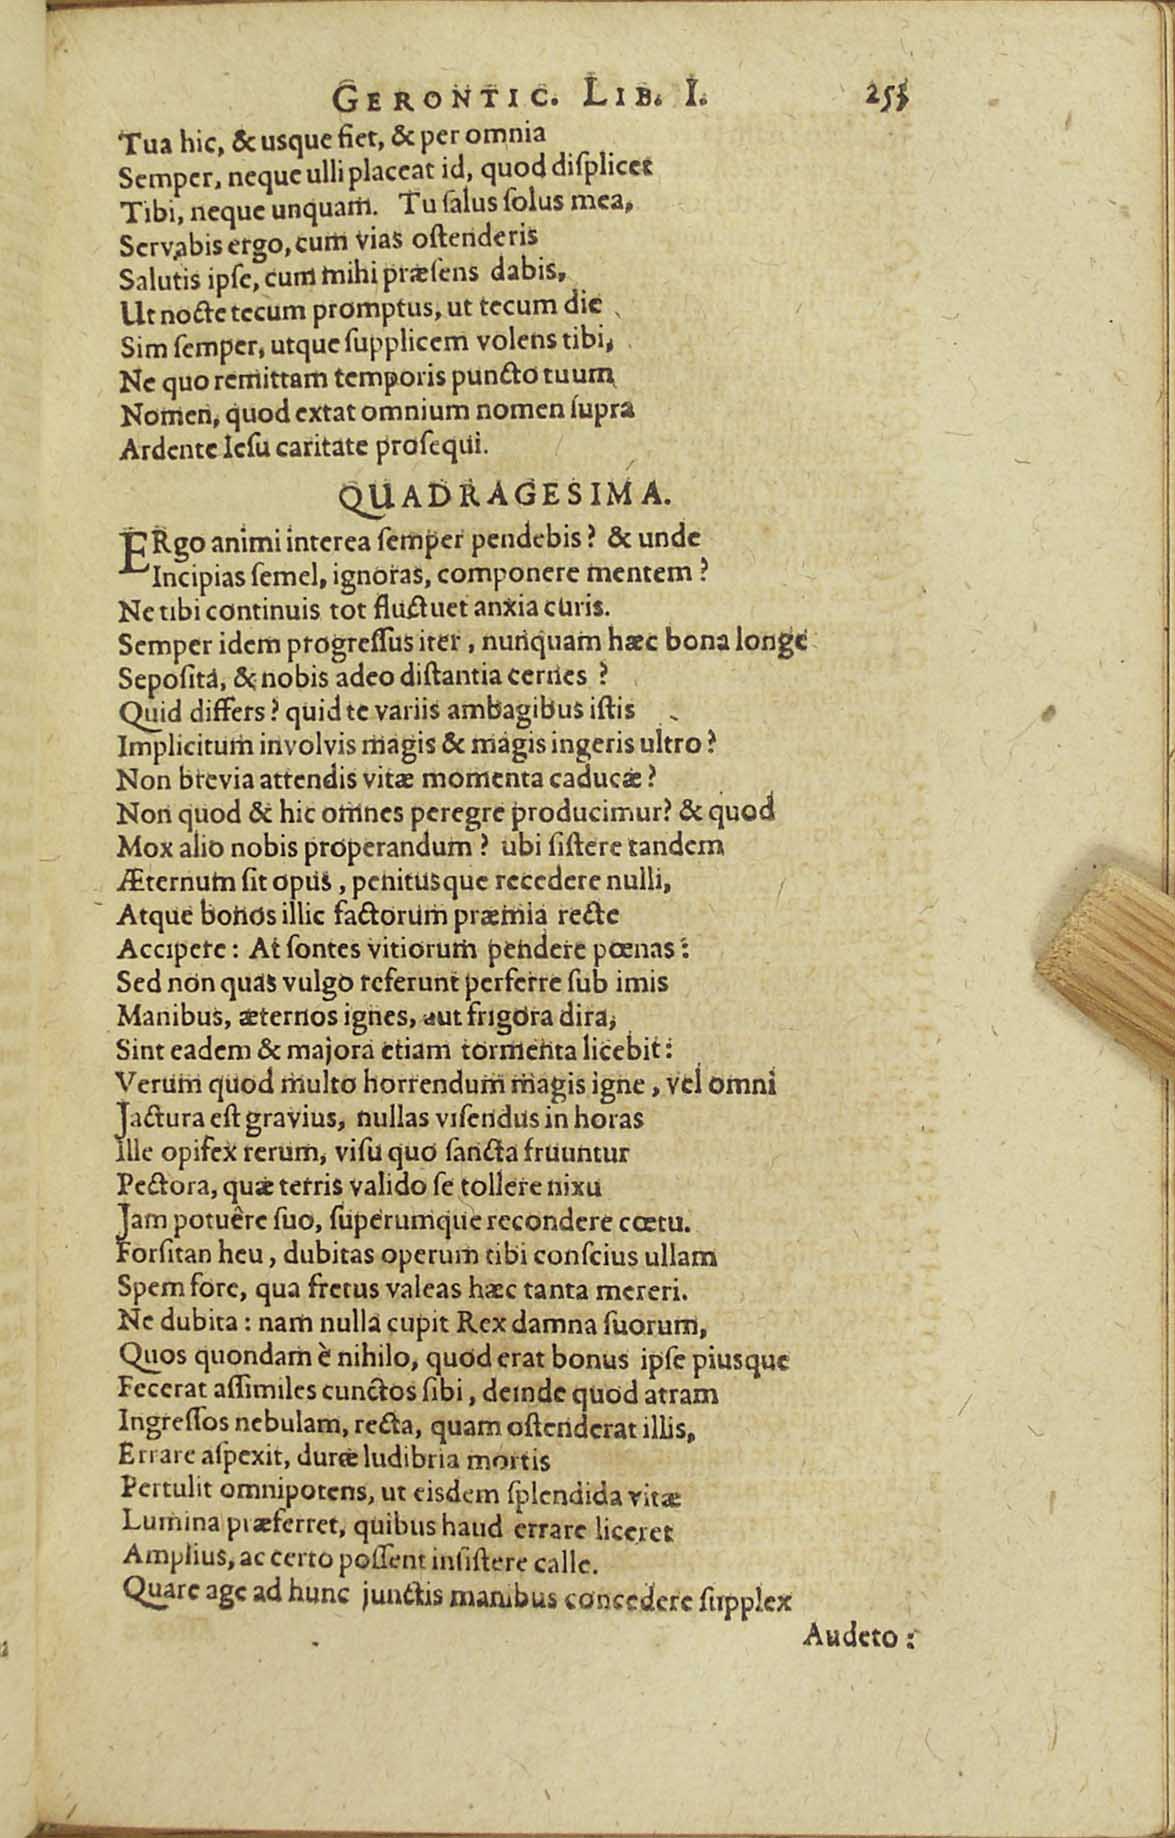 GERONTIC. LIB. I. 253
Tua hic, & usque fiet, & per omnia
Semper, neque ulli placeat id, quod diſplicet
Tibi, neque unquam. Tu ſalus ſolus mea,
Servabis ergo, cum vias oſtenderis
Salutis ipſe, cum mihi præſens dabis,
Ut nocte tecum promptus, ut tecum die
Sim ſemper, utque ſupplicem volens tibi,
Ne quo remittam temporis puncto tuum
Nomen, quod extat omnium nomen ſupra
Ardente Ieſu caritate proſequi.
QUADRAGESIMA.
ERgo animi interea ſemper pendebis? & unde
Incipias ſemel, ignoras, componere mentem?
Ne tibi continuis tot fluctuet anxia curis.
Semper idem progreſſus iter, nunquam hæc bona longe
Sepoſita, & nobis adeo diſtantia cernes?
Quid differs? quid te variis ambagibus iſtis
Implicitum involvis magis & magis ingeris ultro?
Non brevia attendis vitæ momenta caducæ?
Non quod & hic omnes peregre producimur? & quod
Mox alio nobis properandum? ubi ſiſtere tandem
Æternum ſit opus, penitusque recedere nulli,
Atque bonos illic factorum præmia recte
Accipere: At ſontes vitiorum pendere pœnas:
Sed non quas vulgo referunt perferre ſub imis
Manibus, æternos ignes, aut frigora dira;
Sint eadem & majora etiam tormenta licebit:
Verum quod multo horrendum magis igne, vel omni
Jactura eſt gravius, nullas viſendus in horas
Ille opifex rerum, viſu quo ſancta fruuntur
Pectora, quæ terris valido ſe tollere nixu
Jam potuêre ſuo, ſuperumque recondere cœtu.
Forſitan heu, dubitas operum tibi conſcius ullam
Spem fore, qua fretus valeas hæc tanta mereri.
Ne dubita: nam nulla cupit Rex damna ſuorum,
Quos quondam è nihilo, quod erat bonus ipſe piusque
Fecerat aſſimiles cunctos ſibi, deinde quod atram
Ingreſſos nebulam, recta, quam oſtenderat illis,
Errare aſpexit, duræ ludibria mortis
Pertulit omnipotens, ut eisdem ſplendida vitæ
Lumina præferret, quibus haud errare liceret
Amplius, ac certo poſſent inſiſtere calle.
Quare age ad hunc junctis manibus concedere ſupplex
Audeto: